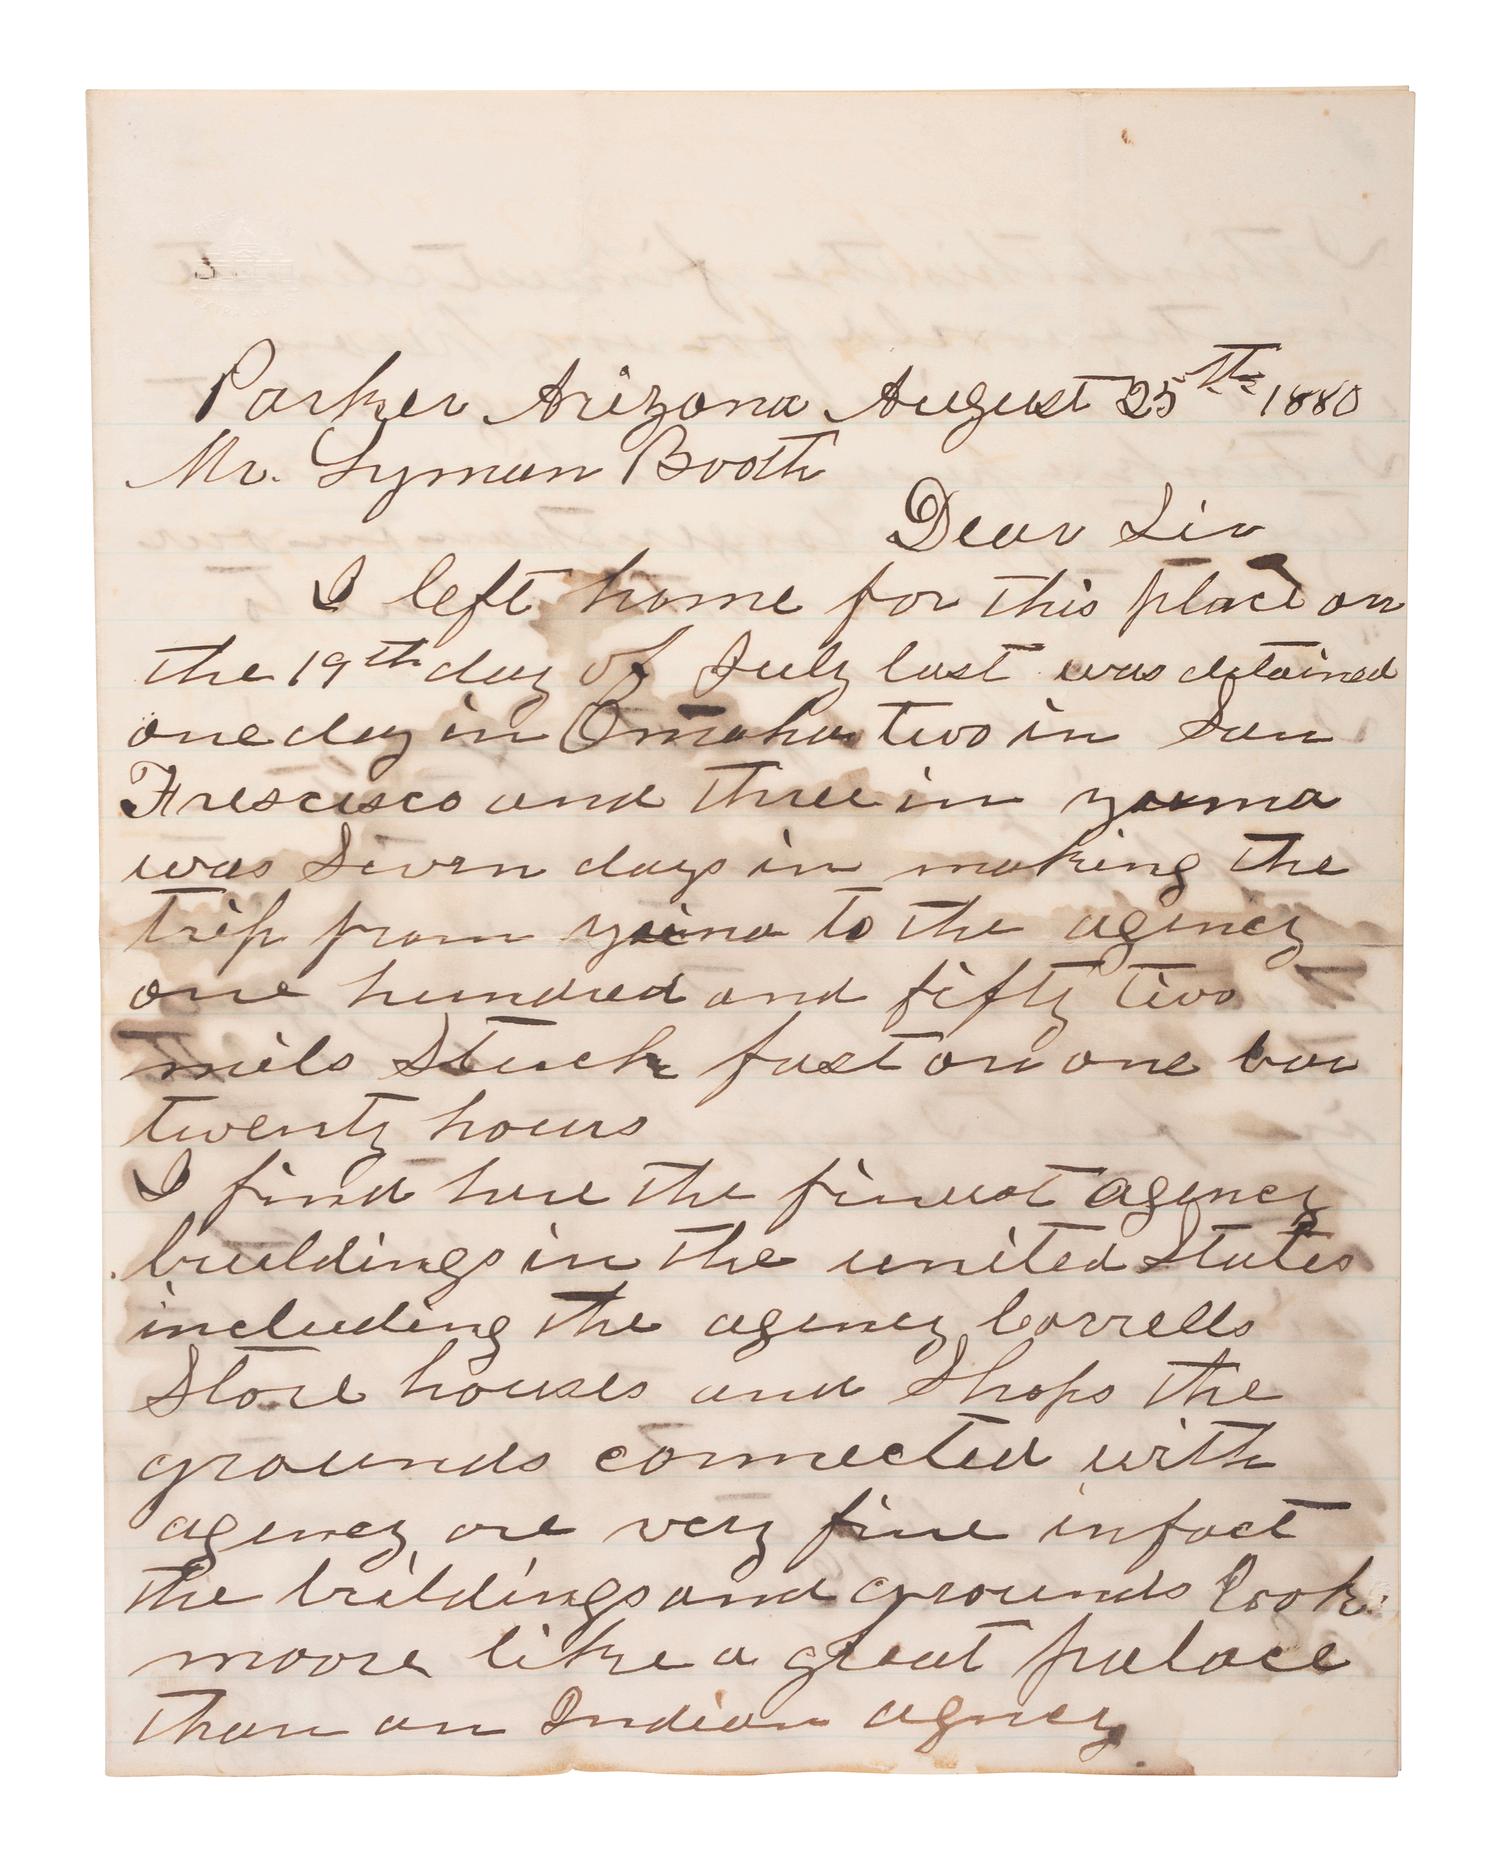 Parker Arizona August 25th 1880
Mr. Lyman Booth
Dear Sir
I left home for this place on
the 19th day of July last was detained
one day in Omaha two in San
Frescisco and three in yuma
was Seven days in making the
trip from yuma to the agency
one hundred and fifty two
miels Stuck fast on one bar
twenty hours
I find here the finest agency
buildings in the united States
including the agency Corrells
Store houses and Shops the
grounds connected with
agency are very fine infact
the brildings and grounds look
moore like a great palace
than an Indian agncy